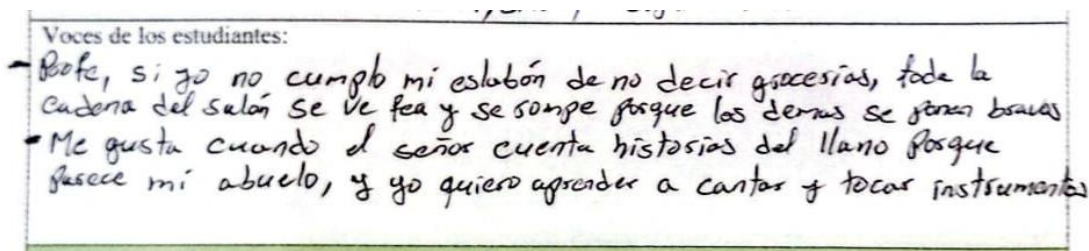 Voces de los estudiantes:
- Profe, si yo no cumplo mi eslabón de no decir grocerias, toda la
cadena del salón se ve fea y se rompe porque los demas se ponen bravos
- Me gusta cuando el señor cuenta historias del llano porque
parece mi abuelo, y yo quiero aprender a cantar y tocar instrumentos